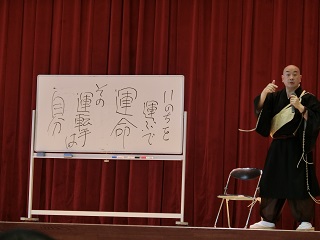 いのちを
運んで
運命
その
運転手は
自分